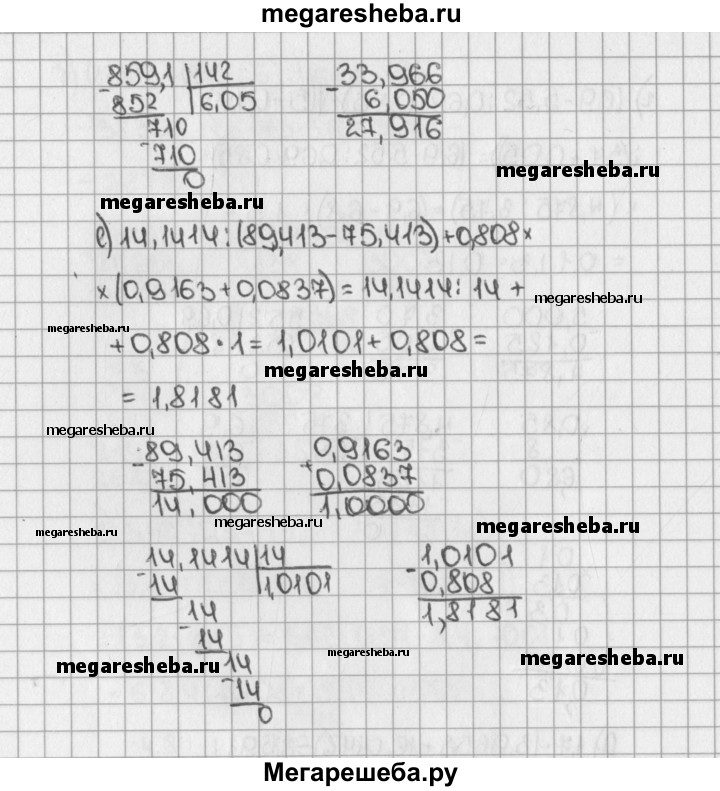 megaresheba.ru
859,1 | 142    33,966
-852 | 6,05    - 6,050
710    27,916
-710    megaresheba.ru
0
megaresheba.ru
е) 14,1414 : (89,413 - 75,413) + 0,808 ×
× (0,9163 + 0,0837) = 14,1414 : 14 + megaresheba.ru
megaresheba.ru + 0,808 · 1 = 1,0101 + 0,808 =
megaresheba.ru
= 1,8181
megaresheba.ru
89,413    0,9163
- 75,413    + 0,0837
14,000    1,0000
megaresheba.ru megaresheba.ru megaresheba.ru
14,1414 | 14    1,0101
-14 | 1,0101    - 0,808
14    1,8181
-14
megaresheba.ru 14 megaresheba.ru megaresheba.ru
-14
0
Мегарешеба.ру